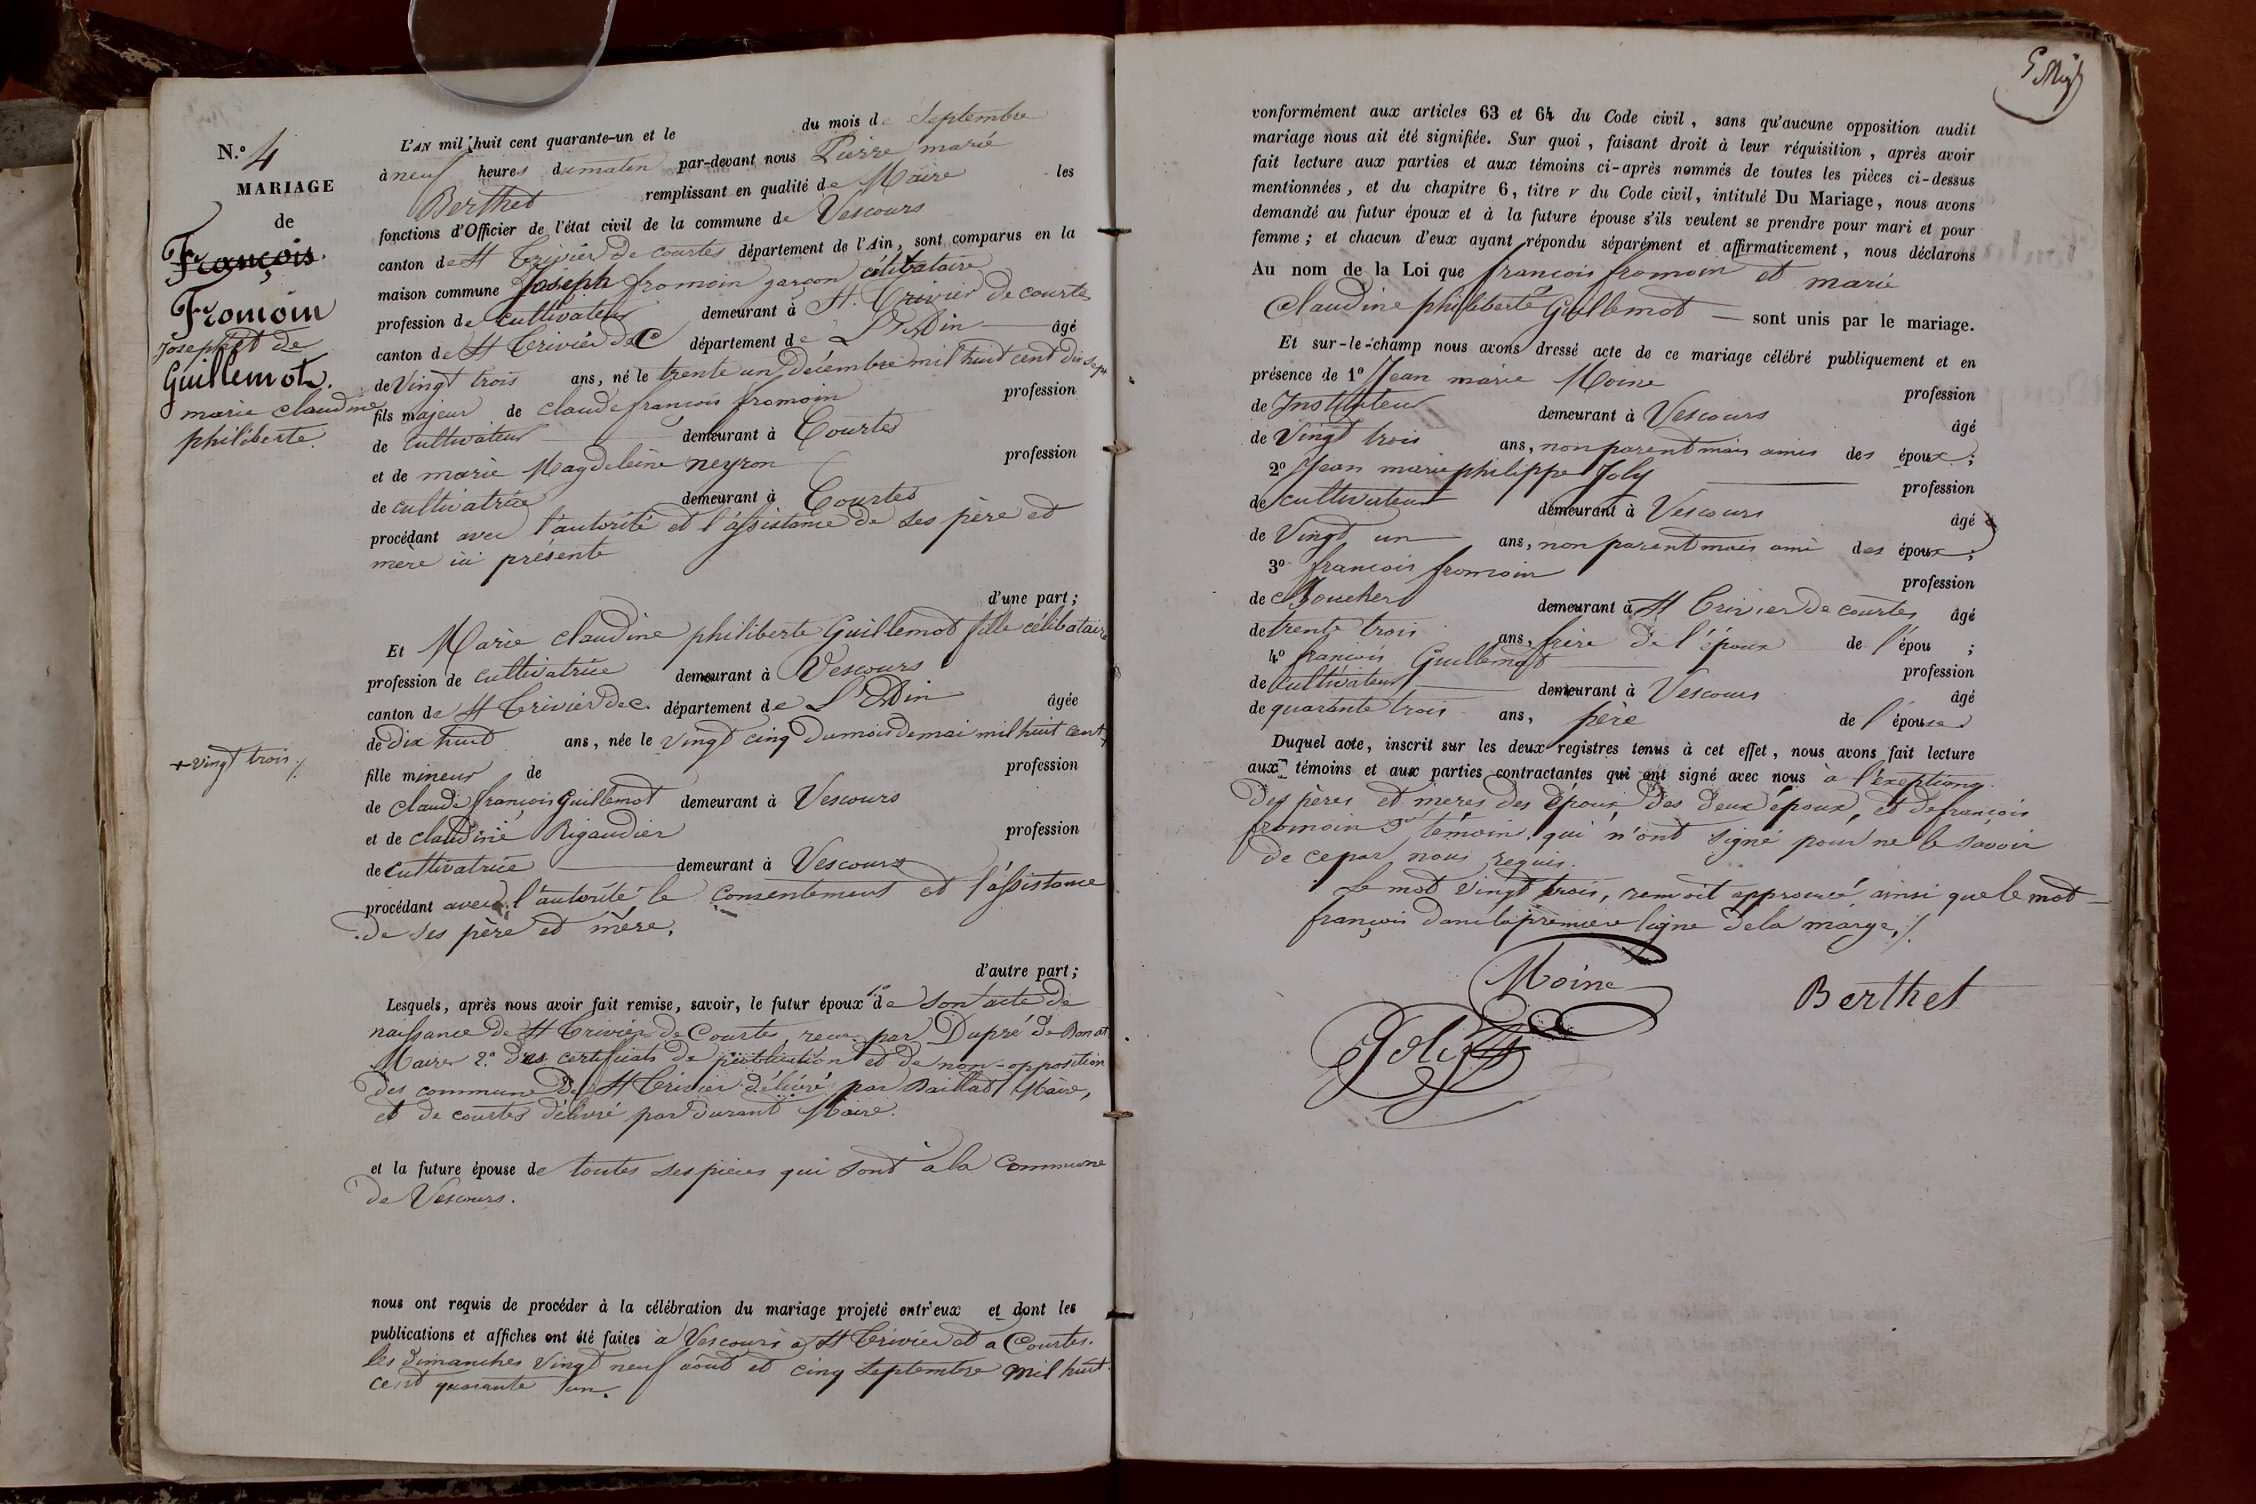 N.o 4
MARIAGE
de
François.
Fromoin
Joseph et de
Guillemot.
marie claudine
philiberte.
+ vingt trois ./.
L'AN mil huit cent quarante-un et le du mois de Septembre
à neuf heures du matin par-devant nous Pierre marie
Berthet remplissant en qualité de Maire les
fonctions d'Officier de l'état civil de la commune de Vescours
canton de St Trivier de courtes département de l'Ain, sont comparus en la
maison commune Joseph fromoin garçon célibataire
profession de cultivateur demeurant à St. Trivier de courtes
canton de St Trivier de C département de L'Ain âgé
de Vingt trois ans, né le trente un Décembre mil huit cent dix sept
fils majeur de claude françois fromoin profession
de cultivateur demeurant à Courtes
et de marie Magdeleine neyron profession
de cultivatrice demeurant à Courtes
procédant avec l'autorité et l'assistance de ses père et
mère ici présente
d'une part;
Et Marie claudine philiberte Guillemot fille célibataire
profession de cultivatrice demeurant à Vescours
canton de St Trivier de c. département de L'Ain âgée
de dix huit ans, née le vingt cinq du mois de mai mil huit cent +
fille mineur de profession
de claude françois Guillemot demeurant à Vescours
et de claudine Rigaudier profession
de cultivatrice demeurant à Vescours
procédant avec l'autorité le consentement et l'assistance
de ses père et mère.
d'autre part;
Lesquels, après nous avoir fait remise, savoir, le futur époux 1o de son acte de
naissance de St Trivier de Courtes, recu par Dupré de Bonat
Maire 2.o des certificats de publication et de non-opposition
des commune de St Trivier délivré par Baillat Maire,
et de courtes délivré par Durant Maire.
et la future épouse de toutes ses pieces qui sont à la Commune
de Vescours.
nous ont requis de procéder à la célébration du mariage projeté entr'eux et dont les
publications et affiches ont été faites à Vescours a St Trivier et a Courtes.
les dimanches vingt neuf août et cinq septembre mil huit
cent quarante un.
conformément aux articles 63 et 64 du Code civil, sans qu'aucune opposition audit
mariage nous ait été signifiée. Sur quoi, faisant droit à leur réquisition, après avoir
fait lecture aux parties et aux témoins ci-après nommés de toutes les pièces ci-dessus
mentionnées, et du chapitre 6, titre v du Code civil, intitulé Du Mariage, nous avons
demandé au futur époux et à la future épouse s'ils veulent se prendre pour mari et pour
femme; et chacun d'eux ayant répondu séparément et affirmativement, nous déclarons
Au nom de la Loi que françois fromoin et marie
Claudine philiberte Guillemot — sont unis par le mariage.
Et sur-le-champ nous avons dressé acte de ce mariage célébré publiquement et en
présence de 1o Jean marie Moine profession
de Instituteur demeurant à Vescours âgé
de Vingt trois ans, non parent mais amis des époux;
2o Jean marie philippe Joly profession
de cultivateur demeurant à Vescours âgé
de Vingt un ans, non parent mais ami des époux;
3o françois fromoin profession
de Boucher demeurant à St Trivier de courtes âgé
de trente trois ans, frère de l'époux de l'épou ;
4o françois Guillemot profession
de cultivateur demeurant à Vescours âgé
de quarante trois ans, père de l'épouse.
Duquel acte, inscrit sur les deux registres tenus à cet effet, nous avons fait lecture
aux témoins et aux parties contractantes qui ont signé avec nous à l'exeption
des pères et meres des époux des deux époux, et de françois
fromoin 3e témoin. qui n'ont signé pour ne le savoir
de ce par nous requis.
Le mot vingt trois, renvoit approuvé, ainsi que le mot
françois dans la premiere ligne de la marge, ./.
Moine
Berthet
Joly